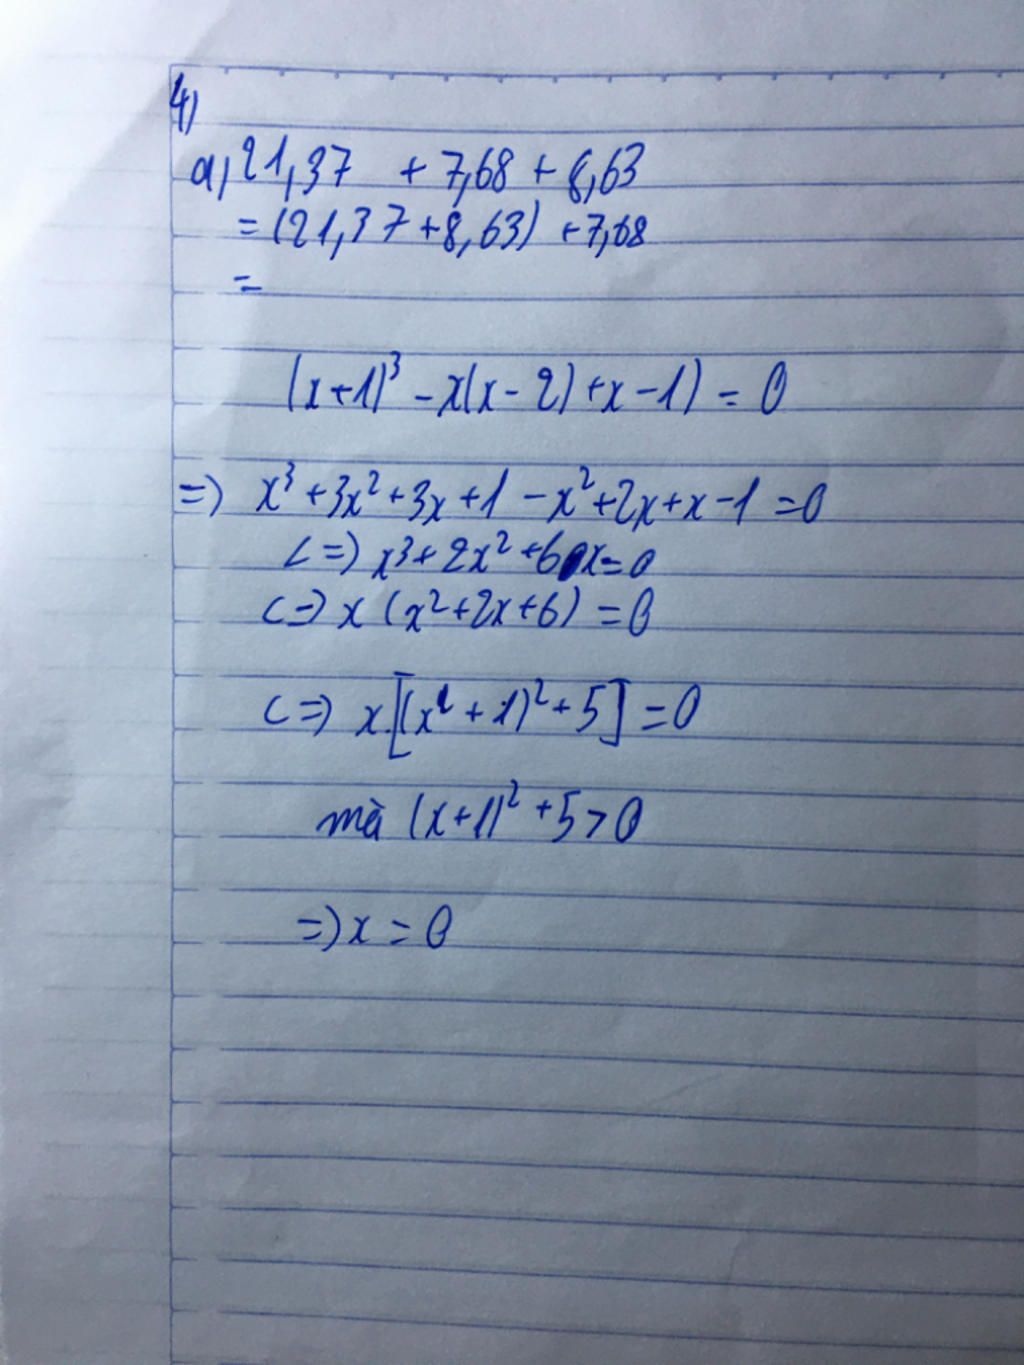 4)
a, 21,37 + 7,68 + 8,63
= (21,37 + 8,63) + 7,68
=
(x+1)³ - x(x-2) + x - 1) = 0
=) x³ + 3x² + 3x + 1 - x² + 2x + x - 1 = 0
<=) x³ + 2x² + 6x = 0
<=) x (x² + 2x + 6) = 0
<=) x.[(x + 1)² + 5] = 0
mà (x+1)² + 5 > 0
=) x = 0